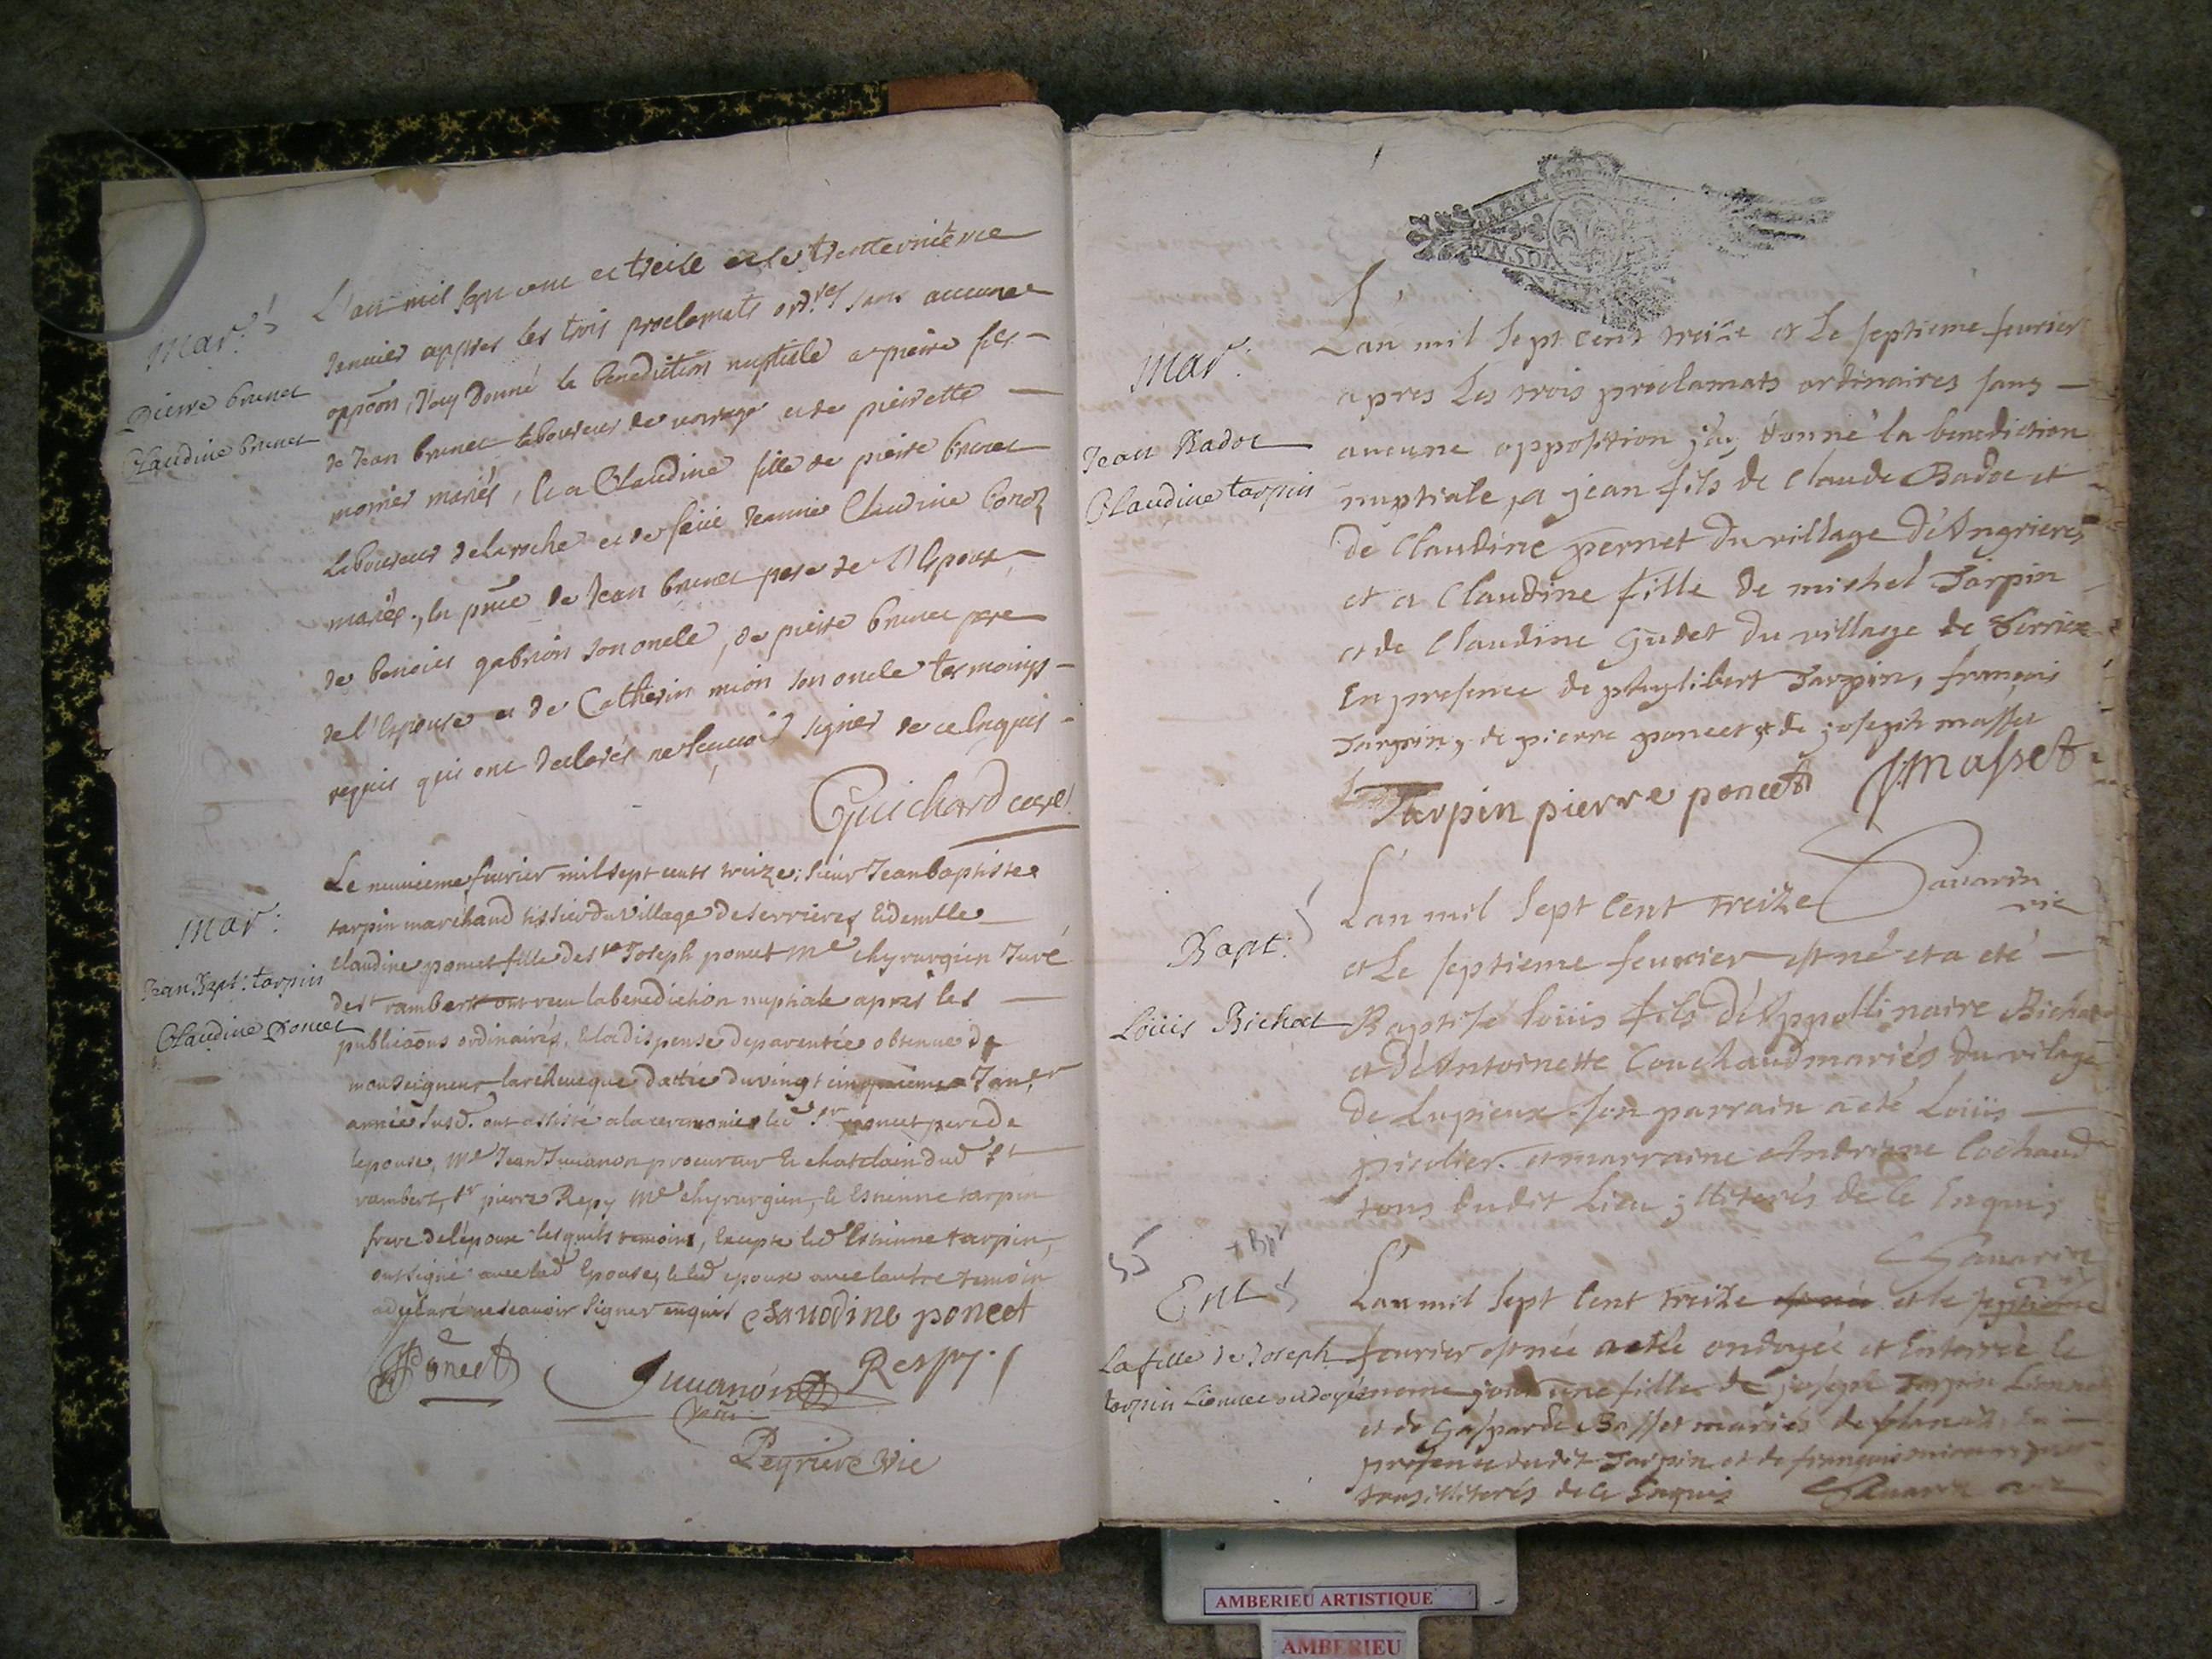 Mar.
Pierre brunet
Claudine brunet
L'an mil sept cent et treise et le trentevnième
Januier appres les trois proclamats ord.res sans aucune
oppōon, J'ay Donné la benediction nuptiale a pierre fils
de Jean brunet laboureur de et de pierrette
monier mariés, Et a Claudine fille de pierre brunet
Laboureur delaroche et de feüe Jeanne Claudine
mariés, En pnce de Jean brunet pere de l'Espoux
de benoist gabrion son oncle, de pierre brunet pere
de l'Espouse et de Catherin mion son oncle tesmoings
requis qui ont declarés ne sçauoir signer de ce Enquis
Guichard curé
Mar.
Jean Bapt: tarpin
Claudine Poncet
Le neuuieme feurier mil sept cents treize; sieur Jean baptiste
tarpin marchand tissier du Village de Serrieres Et demlle
Claudine poncet fille de sr Joseph poncet Me chyrurgien Juré
de st rambert ont receu la benediction nuptiale apres les
publicaōns ordinaires, Et la dispense de parentée obtenue de
monseigneur larcheueque dattée du vingt cinquieme Janer
année susd. ont assisté a la ceremonie led sr poncet pere de
lepouse, Me Jean Juuanon procureur Et chatelain dud st
rambert, sr pierre Respy Me chyrurgien, Et Estienne tarpin
frere de lépoux lesquels temoins, Excepté led Estienne tarpin,
ont signé auec lad Epouse, Et led epoux auec lautre temoin
a declaré ne scauoir signer enquis Claudine poncet
Poncet Juuanon Respy
Peyriere Vic
Mar.
Jean Badoc
Claudine tarpin
L'an mil sept cent treize et Le septieme feurier
apres Les trois proclamats ordinaires sans
aucune opposition j'ay donné la benediction
nuptiale a jean fils de Claude Badoc et
de Claudine pernet du village d'Angrieres
et a Claudine fille de michel Tarpin
et de Claudine Gudet du village de
En presence de phuylibert Tarpin, françois
Tarpin, de pierre poncet et de joseph masset
Tarpin pierre poncet J Masset
Sauarin
vic
Bapt.
Loüis Bichat
L'an mil sept Cent treize
et Le septieme feurier est né et a eté
Baptisé loüis fils d'Appollinaire Bichat
et d'Antoinette Couchaud mariés du vilage
de Lupieux son parrain a eté Loüis
et marraine Andriane Cochaud
tous dudit Lieu illiterés de Ce Enquis
Sauarin
vic
55
+ Bpt
Ent
La fille de Joseph
tarpin Lionnet ondoyée
L'an mil sept Cent treize et le septieme
feurier est née a eté ondoyée et Enterrée le
meme jour une fille de joseph Tarpin
et de Gasparde Basset mariés de En
presence dudit Tarpin et de françois
tous illiterés de Ce Enquis Sauarin
AMBERIEU ARTISTIQUE
AMBERIEU